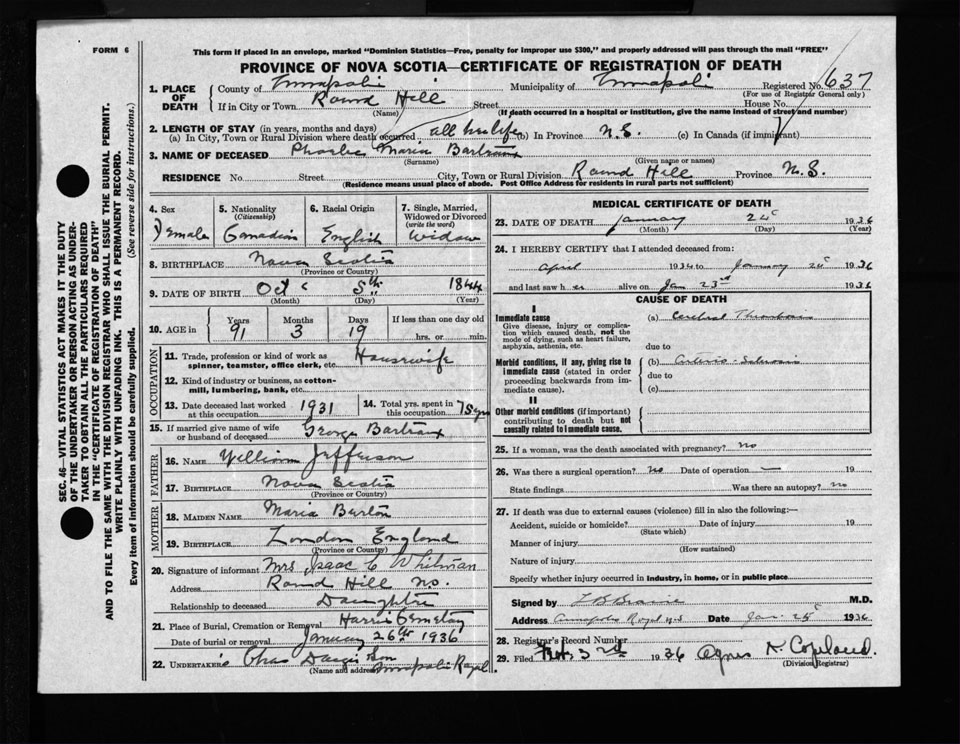 FORM 6
This form if placed in an envelope, marked "Dominion Statistics—Free, penalty for improper use $300," and properly addressed will pass through the mail "FREE"
PROVINCE OF NOVA SCOTIA—CERTIFICATE OF REGISTRATION OF DEATH
1. PLACE OF DEATH County of Annapolis Municipality of Annapolis Registered No. 637
(For use of Registrar General only)
If in City or Town Round Hill Street House No.
(Name) (If death occurred in a hospital or institution, give the name instead of street and number)
2. LENGTH OF STAY (in years, months and days)
(a) In City, Town or Rural Division where death occurred all her life (b) In Province N.S. (c) In Canada (if immigrant)
3. NAME OF DECEASED Phoebe Maria Bartraux
(Surname) (Given name or names)
RESIDENCE No. Street City, Town or Rural Division Round Hill Province N.S.
(Residence means usual place of abode. Post Office Address for residents in rural parts not sufficient)
4. Sex Female
5. Nationality (Citizenship) Canadian
6. Racial Origin English
7. Single, Married, Widowed or Divorced (write the word) Widow
8. BIRTHPLACE Nova Scotia
(Province or Country)
9. DATE OF BIRTH Oct 5th 1844
(Month) (Day) (Year)
10. AGE in Years 91 Months 3 Days 19 If less than one day old hrs. or min.
OCCUPATION
11. Trade, profession or kind of work as spinner, teamster, office clerk, etc. Housewife
12. Kind of industry or business, as cotton-mill, lumbering, bank, etc.
13. Date deceased last worked at this occupation 1931
14. Total yrs. spent in this occupation 75 yrs
15. If married give name of wife or husband of deceased George Bartraux
FATHER
16. NAME William Jefferson
17. BIRTHPLACE Nova Scotia
(Province or Country)
MOTHER
18. MAIDEN NAME Maria Burton
19. BIRTHPLACE London England
(Province or Country)
20. Signature of informant Mrs Isaac C Whitman
Address Round Hill NS.
Relationship to deceased Daughter
21. Place of Burial, Cremation or Removal Harris Cemetary
Date of burial or removal January 26th 1936
22. UNDERTAKER'S Chas Son Annapolis Royal.
(Name and address)
MEDICAL CERTIFICATE OF DEATH
23. DATE OF DEATH January 24 1936
(Month) (Day) (Year)
24. I HEREBY CERTIFY that I attended deceased from:
April 1934 to January 24 1936
and last saw h er alive on Jan 23rd 1936
CAUSE OF DEATH
I
Immediate cause
Give disease, injury or complication which caused death, not the mode of dying, such as heart failure, asphyxia, asthenia, etc.
(a) Cerebral Thrombosis
due to
Morbid conditions, if any, giving rise to immediate cause (stated in order proceeding backwards from immediate cause).
(b) Arterio-Sclerosis
due to
(c)
II
Other morbid conditions (if important) contributing to death but not causally related to immediate cause.
25. If a woman, was the death associated with pregnancy? no
26. Was there a surgical operation? no Date of operation — 19
State findings Was there an autopsy? no
27. If death was due to external causes (violence) fill in also the following:—
Accident, suicide or homicide? Date of injury 19
(State which)
Manner of injury
(How sustained)
Nature of injury
Specify whether injury occurred in industry, in home, or in public place
Signed by L B Braine M.D.
Address Annapolis Royal N.S Date Jan 25 1936
28. Registrar's Record Number
29. Filed Feb. 3rd 1936 Agnes K. Copeland.
(Division Registrar)
SEC. 46—VITAL STATISTICS ACT MAKES IT THE DUTY
OF THE UNDERTAKER OR PERSON ACTING AS UNDER-
TAKER TO OBTAIN ALL THE PARTICULARS REQUIRED
IN THE "CERTIFICATE OF REGISTRATION OF DEATH"
AND TO FILE THE SAME WITH THE DIVISION REGISTRAR WHO SHALL ISSUE THE BURIAL PERMIT.
WRITE PLAINLY WITH UNFADING INK. THIS IS A PERMANENT RECORD.
Every item of information should be carefully supplied. (See reverse side for instructions.)